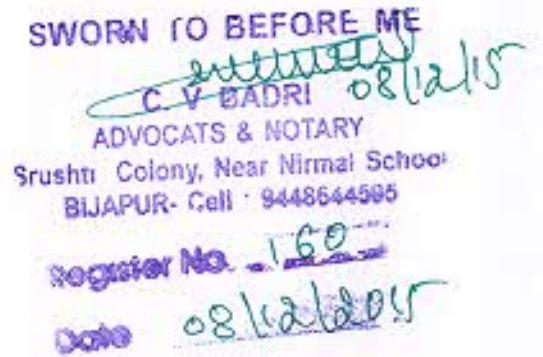 SWORN TO BEFORE ME
08/12/15
C. V BADRI
ADVOCATS & NOTARY
Srushti Colony, Near Nirmal School
BIJAPUR- Cell : 9448644595
Register No. 160
Date 08/12/2015